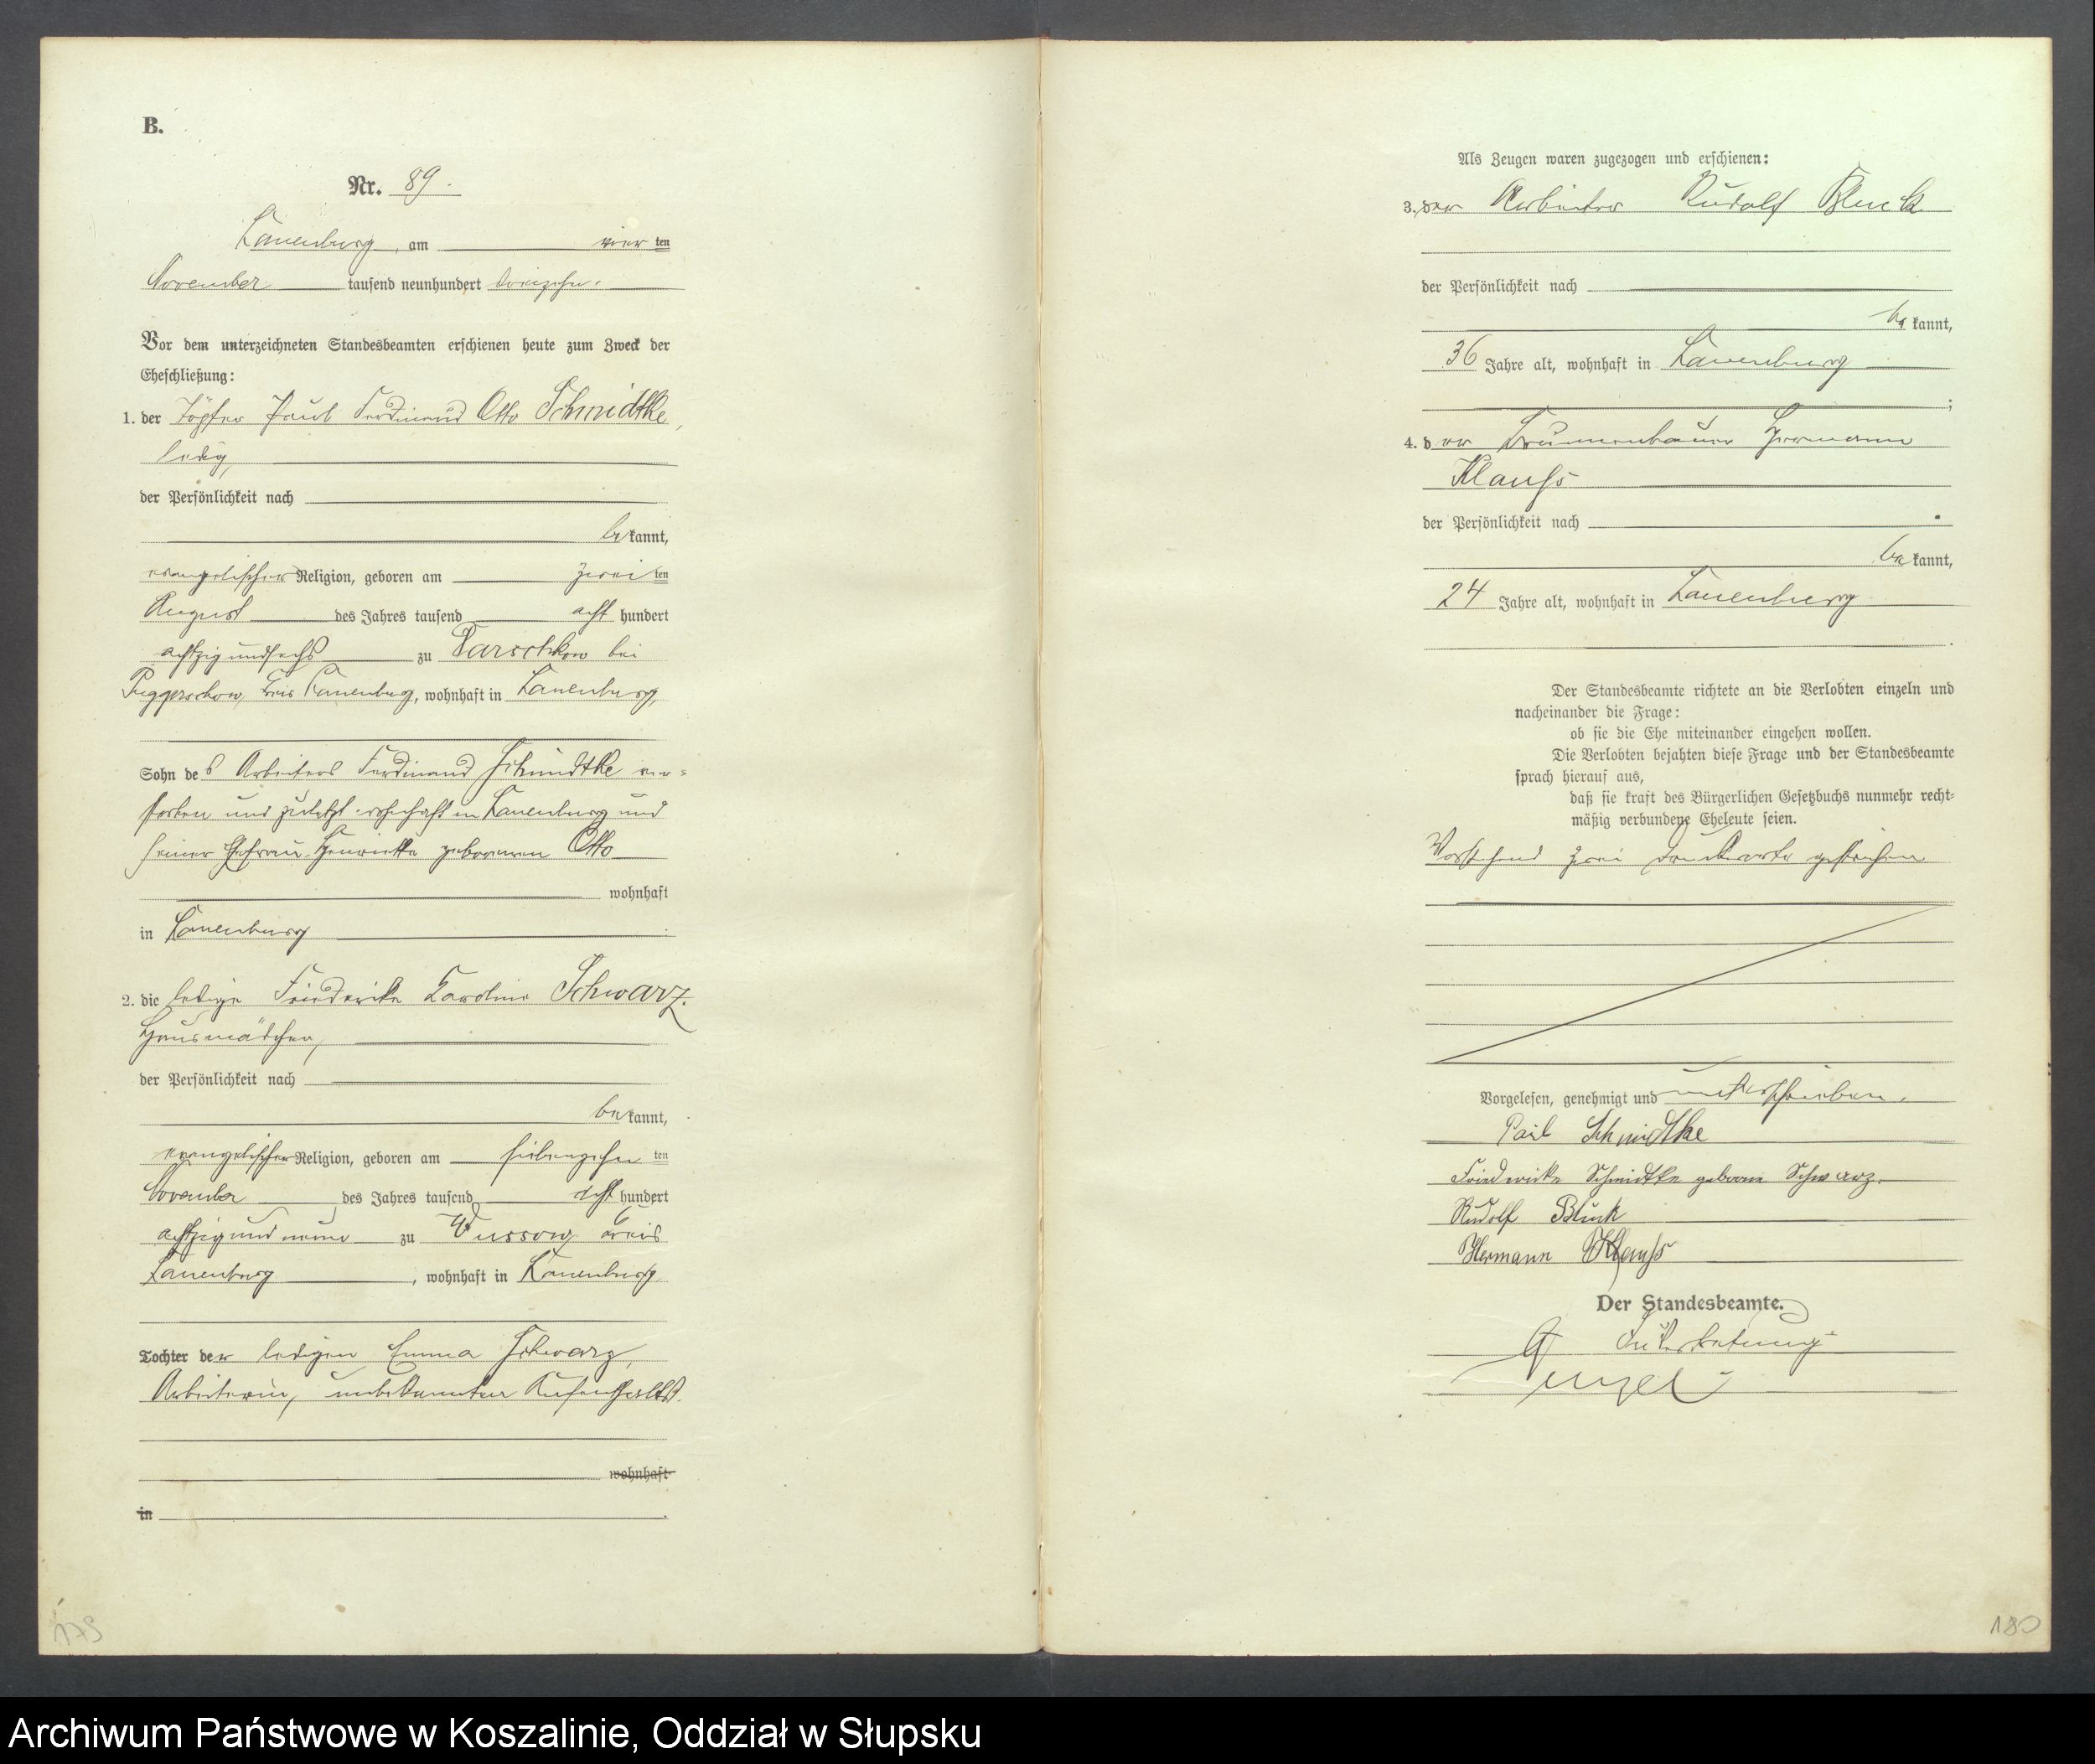 B.
Nr. 89.
Lauenburg, am vierten
November tausend neunhundert dreizehn.
Vor dem unterzeichneten Standesbeamten erschienen heute zum Zweck der
Eheschließung:
1. der Töpfer Paul Ferdinand Otto Schmidtke,
ledig,
der Persönlichkeit nach
bekannt,
evangelischer Religion, geboren am zweiten
August des Jahres tausend acht hundert
achtzig und sechs zu Darschkow bei
Puggerschow, Kreis Lauenburg, wohnhaft in Lauenburg,
Sohn des Arbeiters Ferdinand Schmidtke ver-
storben und zuletzt wohnhaft in Lauenburg und
seiner Ehefrau Henriette geborenen Otto
wohnhaft
in Lauenburg
2. die ledige Friederike Karoline Schwarz.
Hausmädchen,
der Persönlichkeit nach
bekannt,
evangelischer Religion, geboren am siebenzehnten
November des Jahres tausend acht hundert
achtzig und neun zu Wussow Kreis
Lauenburg, wohnhaft in Lauenburg
Tochter der ledigen Emma Schwarz,
Arbeiterin, unbekannten Aufenthalts.
wohnhaft
in
175
Als Zeugen waren zugezogen und erschienen:
3. der Arbeiter Rudolf Bluck
der Persönlichkeit nach
bekannt,
36 Jahre alt, wohnhaft in Lauenburg
;
4. der Brunnenbauer Hermann
Klauss
der Persönlichkeit nach
bekannt,
24 Jahre alt, wohnhaft in Lauenburg
.
Der Standesbeamte richtete an die Verlobten einzeln und
nacheinander die Frage:
ob sie die Ehe miteinander eingehen wollen.
Die Verlobten bejahten diese Frage und der Standesbeamte
sprach hierauf aus,
daß sie kraft des Bürgerlichen Gesetzbuchs nunmehr recht-
mäßig verbundene Eheleute seien.
Vorstehend zwei Druckworte gestrichen
Vorgelesen, genehmigt und unterschrieben.
Paul Schmidtke
Friederike Schmidtke geborene Schwarz.
Rudolf Bluck
Hermann Klauss
Der Standesbeamte.
In Vertretung
180
Archiwum Państwowe w Koszalinie, Oddział w Słupsku